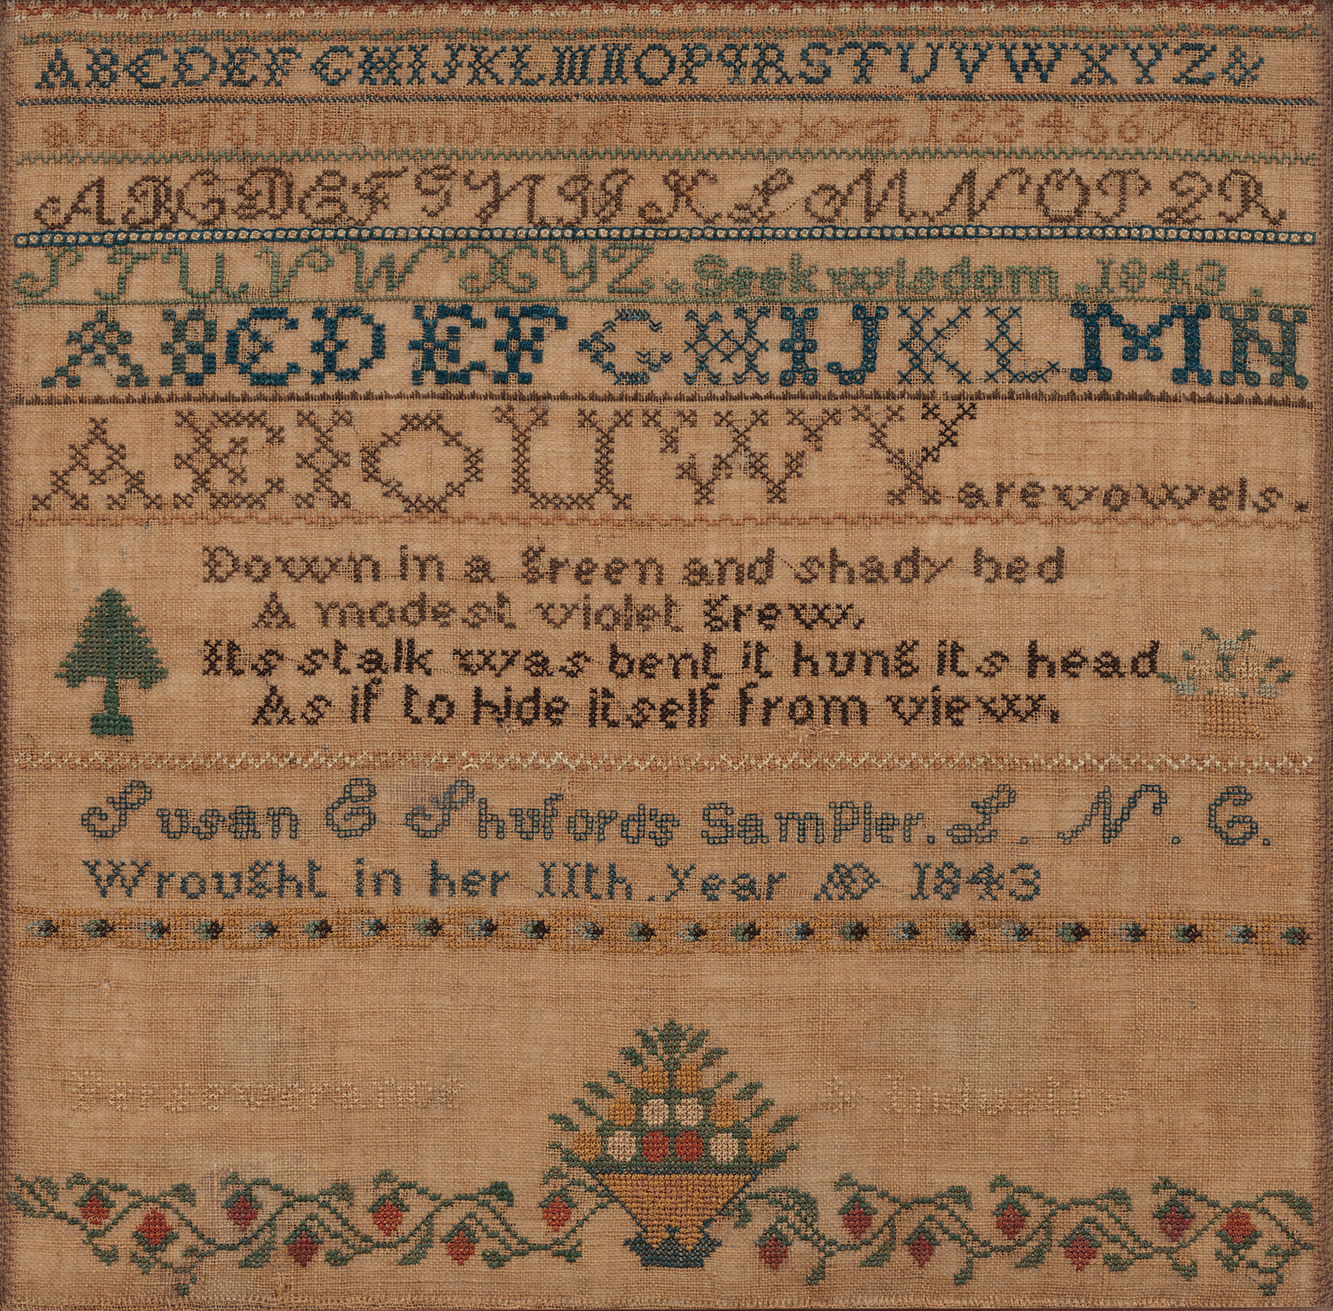 ABCDEFGHIJKLMNOPQRSTUVWXYZ&
ABCDEFGHIJKLMNOPQR
STUVWXYZ. Seek wisdom .1843.
ABCDEFGHIJKLMN
AEIOUWY are vowels.
Down in a green and shady bed
A modest violet grew.
Its stalk was bent it hung its head
As if to hide itself from view.
Susan E Shuford's Sampler. L. N. C.
Wrought in her 11th. year AD 1843
Perseverance & Industry